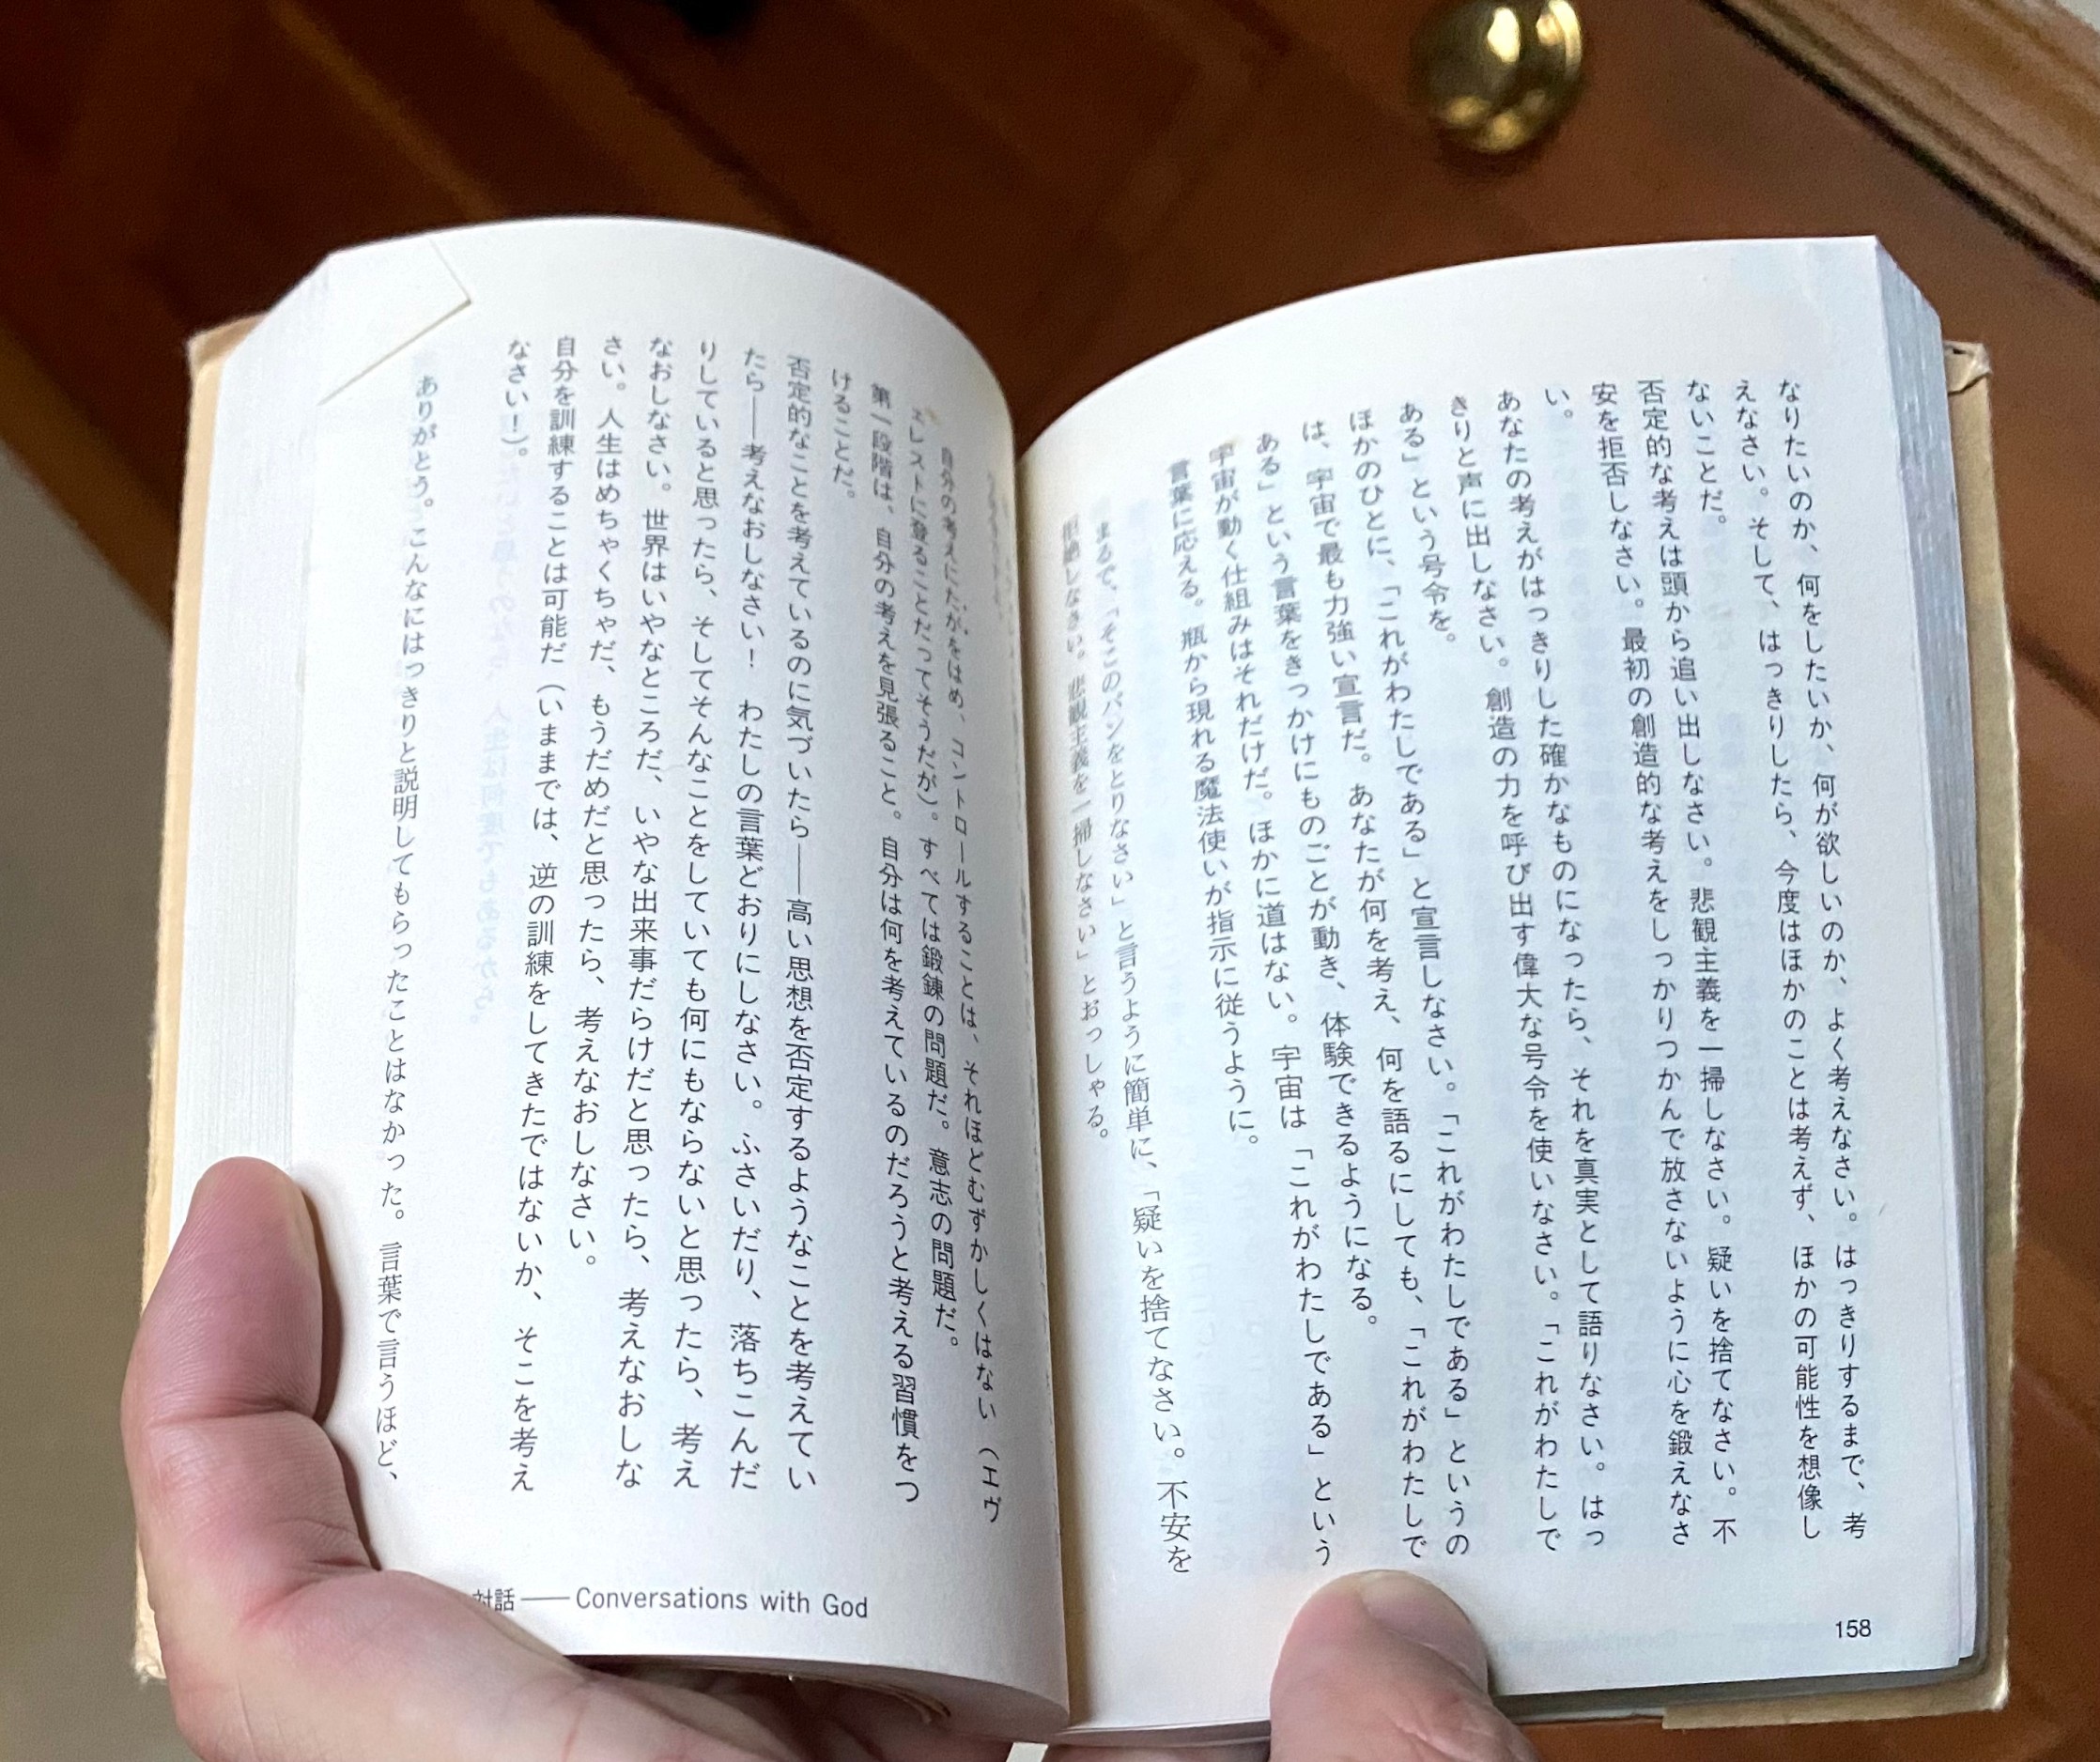 なりたいのか、何をしたいか、何が欲しいのか、よく考えなさい。はっきりするまで、考
えなさい。そして、はっきりしたら、今度はほかのことは考えず、ほかの可能性を想像し
ないことだ。
否定的な考えは頭から追い出しなさい。悲観主義を一掃しなさい。疑いを捨てなさい。不
安を拒否しなさい。最初の創造的な考えをしっかりつかんで放さないように心を鍛えなさ
い。
あなたの考えがはっきりした確かなものになったら、それを真実として語りなさい。はっ
きりと声に出しなさい。創造の力を呼び出す偉大な号令を使いなさい。「これがわたしで
ある」という号令を。
ほかのひとに、「これがわたしである」と宣言しなさい。「これがわたしである」というの
は、宇宙で最も力強い宣言だ。あなたが何を考え、何を語るにしても、「これがわたしで
ある」という言葉をきっかけにものごとが動き、体験できるようになる。
宇宙が動く仕組みはそれだけだ。ほかに道はない。宇宙は「これがわたしである」という
言葉に応える。瓶から現れる魔法使いが指示に従うように。
まるで、「そこのパンをとりなさい」と言うように簡単に、「疑いを捨てなさい。不安を
拒絶しなさい。悲観主義を一掃しなさい」とおっしゃる。
158
自分の考えにたがをはめ、コントロールすることは、それほどむずかしくはない（エヴ
ェレストに登ることだってそうだが）。すべては鍛錬の問題だ。意志の問題だ。
第一段階は、自分の考えを見張ること。自分は何を考えているのだろうと考える習慣をつ
けることだ。
否定的なことを考えているのに気づいたら——高い思想を否定するようなことを考えてい
たら——考えなおしなさい！　わたしの言葉どおりにしなさい。ふさいだり、落ちこんだ
りしていると思ったら、そしてそんなことをしていても何にもならないと思ったら、考え
なおしなさい。世界はいやなところだ、いやな出来事だらけだと思ったら、考えなおしな
さい。人生はめちゃくちゃだ、もうだめだと思ったら、考えなおしなさい。
自分を訓練することは可能だ（いままでは、逆の訓練をしてきたではないか、そこを考え
なさい！）。
ありがとう。こんなにはっきりと説明してもらったことはなかった。言葉で言うほど、
対話——Conversations with God